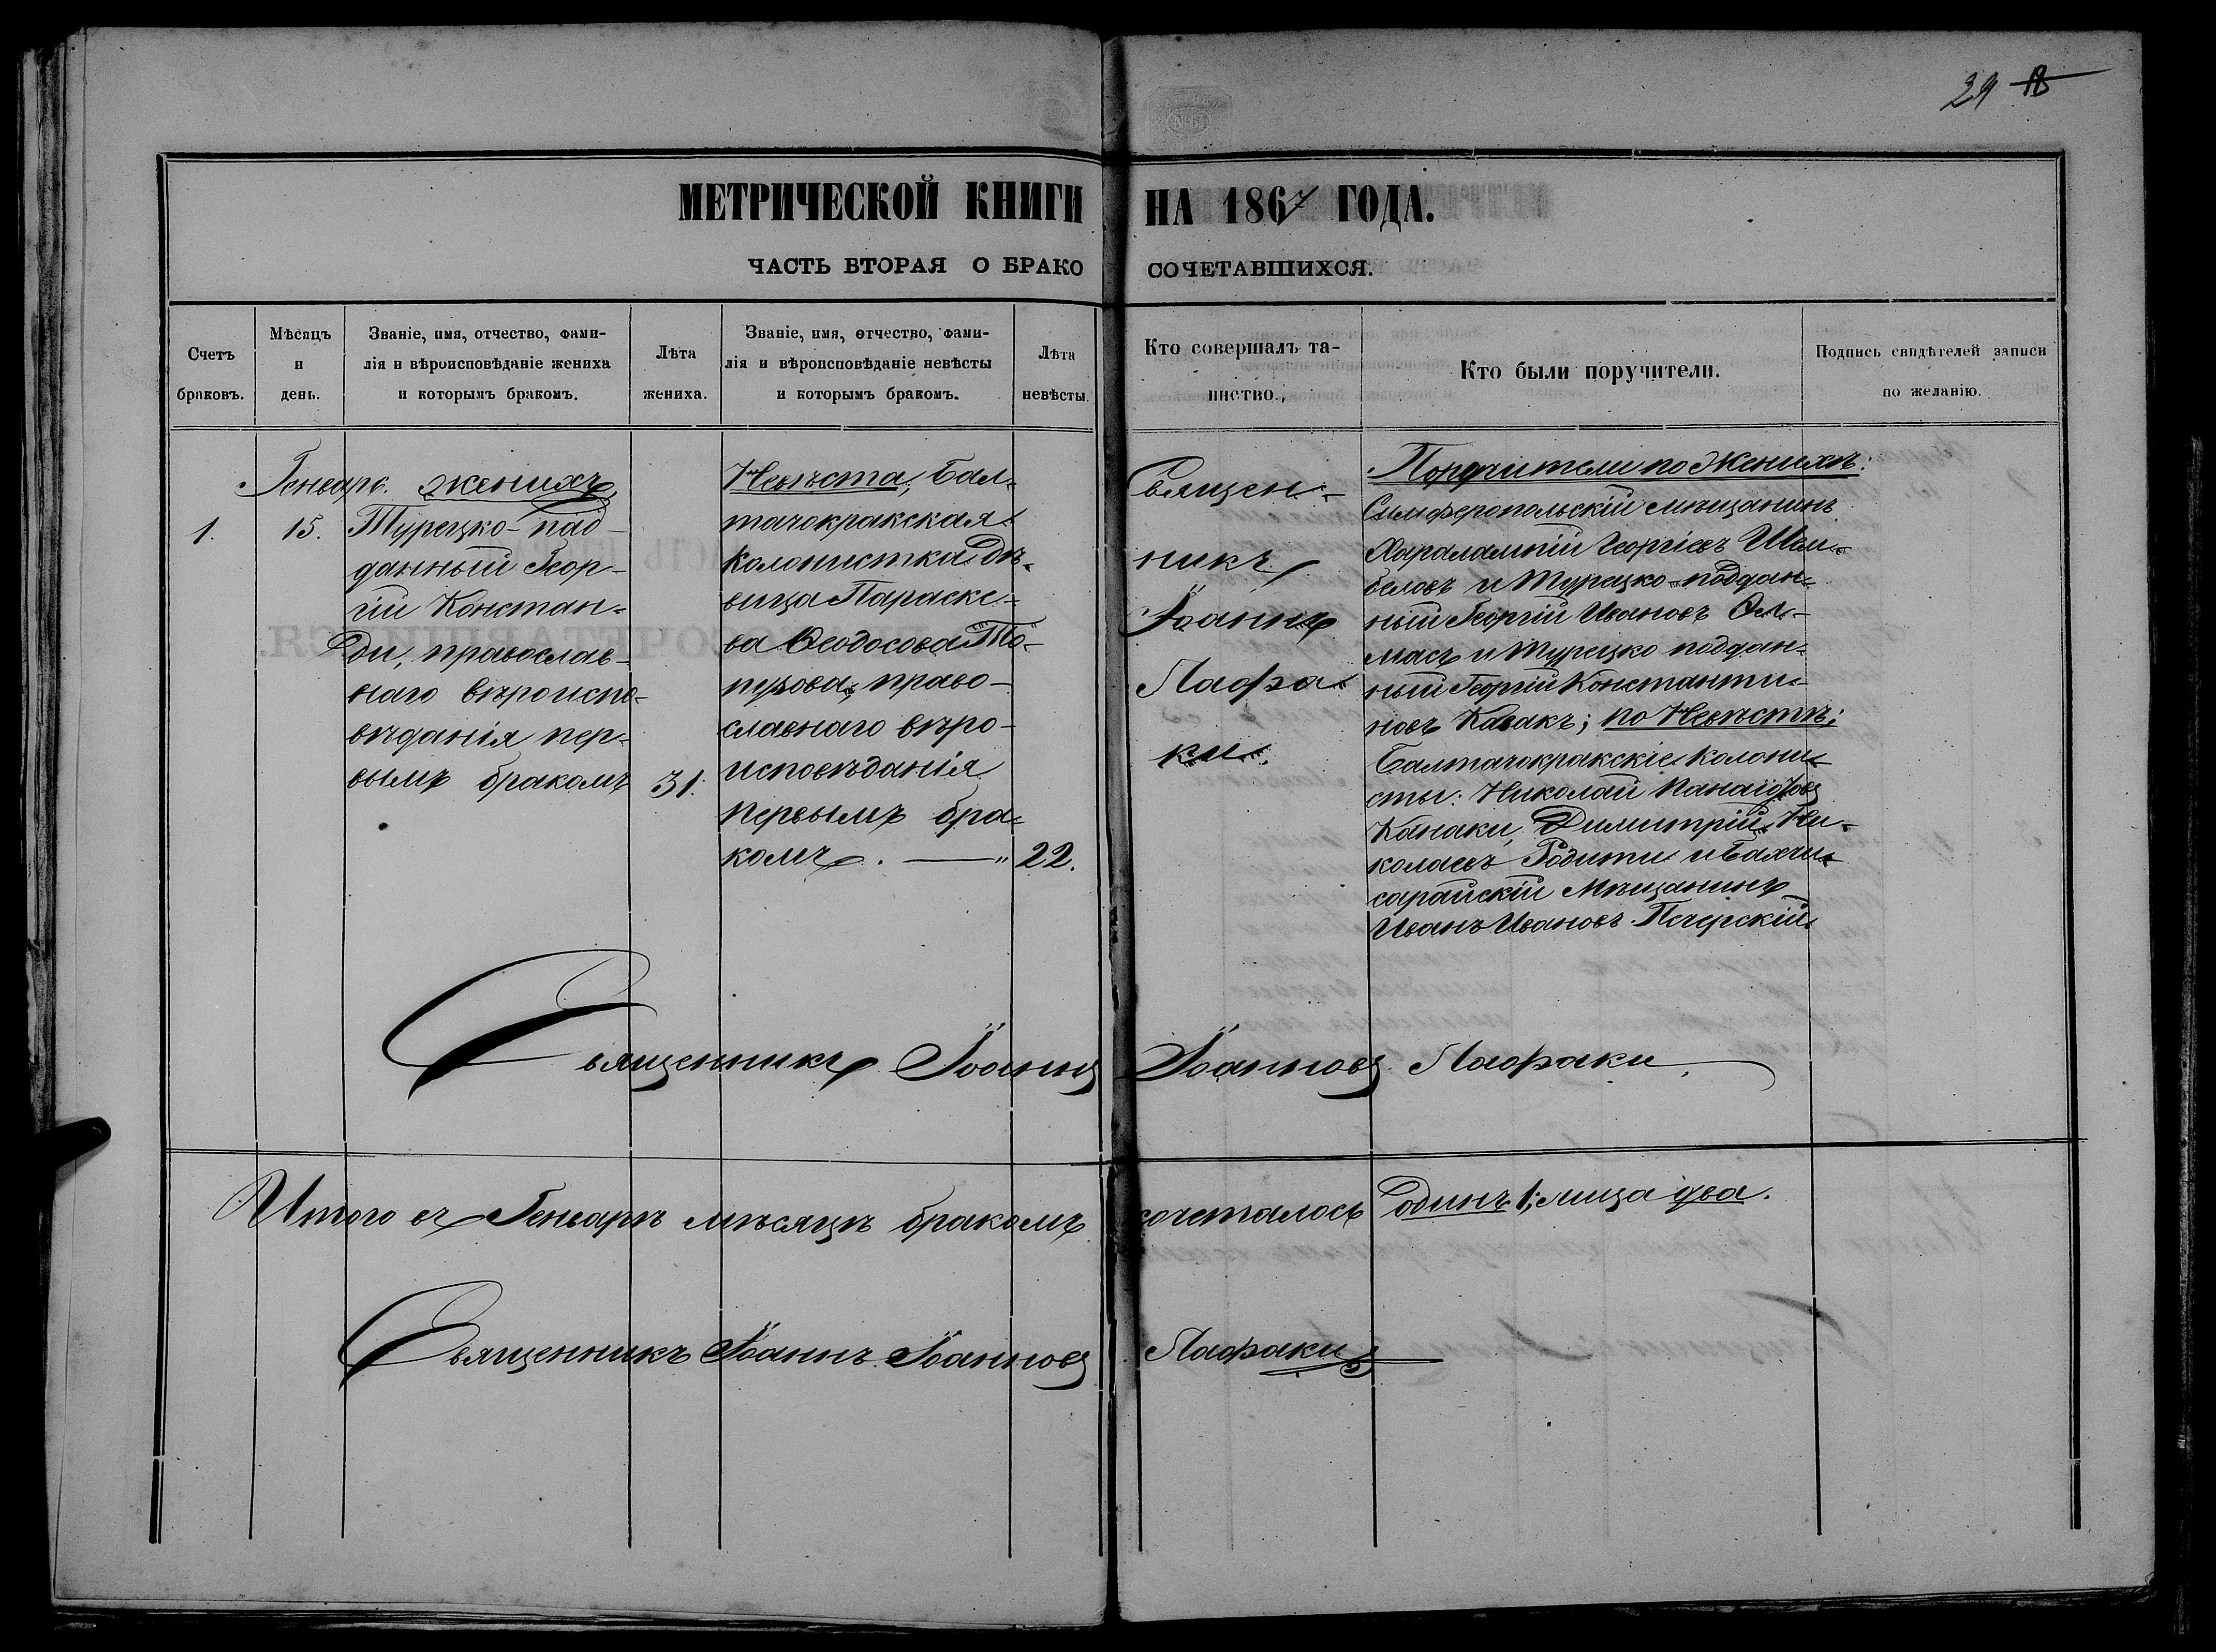 29 18
МЕТРИЧЕСКОЙ КНИГИ НА 1867 ГОДА.
ЧАСТЬ ВТОРАЯ О БРАКО СОЧЕТАВШИХСЯ.
Счетъ
браковъ.
Мѣсяцъ
и
день.
Званіе, имя, отчество, фами-
лія и вѣроисповѣданіе жениха
и которымъ бракомъ.
Лѣта
жениха.
Званіе, имя, отчество, фами-
лія и вѣроисповѣданіе невѣсты
и которымъ бракомъ.
Лѣта
невѣсты.
Кто совершалъ та-
инство.
Кто были поручители.
Подпись свидѣтелей записи
по желанію.
1.
Генварь.
15.
Женихъ,
Турецко-под-
данный Геор-
гій Констан-
ди, православ-
наго вѣроиспо-
вѣданія пер-
вымъ бракомъ
31.
Невѣста, Бал-
тачокракская
колонистка дѣ-
вица Параске-
ва Ѳеодосова
право-
славнаго вѣро-
исповѣданія
первымъ бра-
комъ. — „
22.
Священ-
никъ
Іоаннъ
Лафа-
ки.
Поручители по Женихѣ:
Симферопольскій мѣщанинъ
Харалампій Георгіевъ
и Турецко-поддан-
ный Георгій Ивановъ Ол-
масъ и Турецко поддан-
ный Георгій Константи-
новъ Казакъ; по Невѣстѣ:
Балтачокракскіе колони-
сты: Николай Панаіотовъ
Канаки, Димитрій Ни-
колаевъ Родити и Бахчи-
сарайскій Мѣщанинъ
Иванъ Ивановъ Печерскій
Священникъ Іоаннъ Іоанновъ Лафаки
Итого въ Генварѣ мѣсяцѣ бракомъ сочеталось одинъ 1; лица два.
Священникъ Іоаннъ Іоанновъ Лафаки